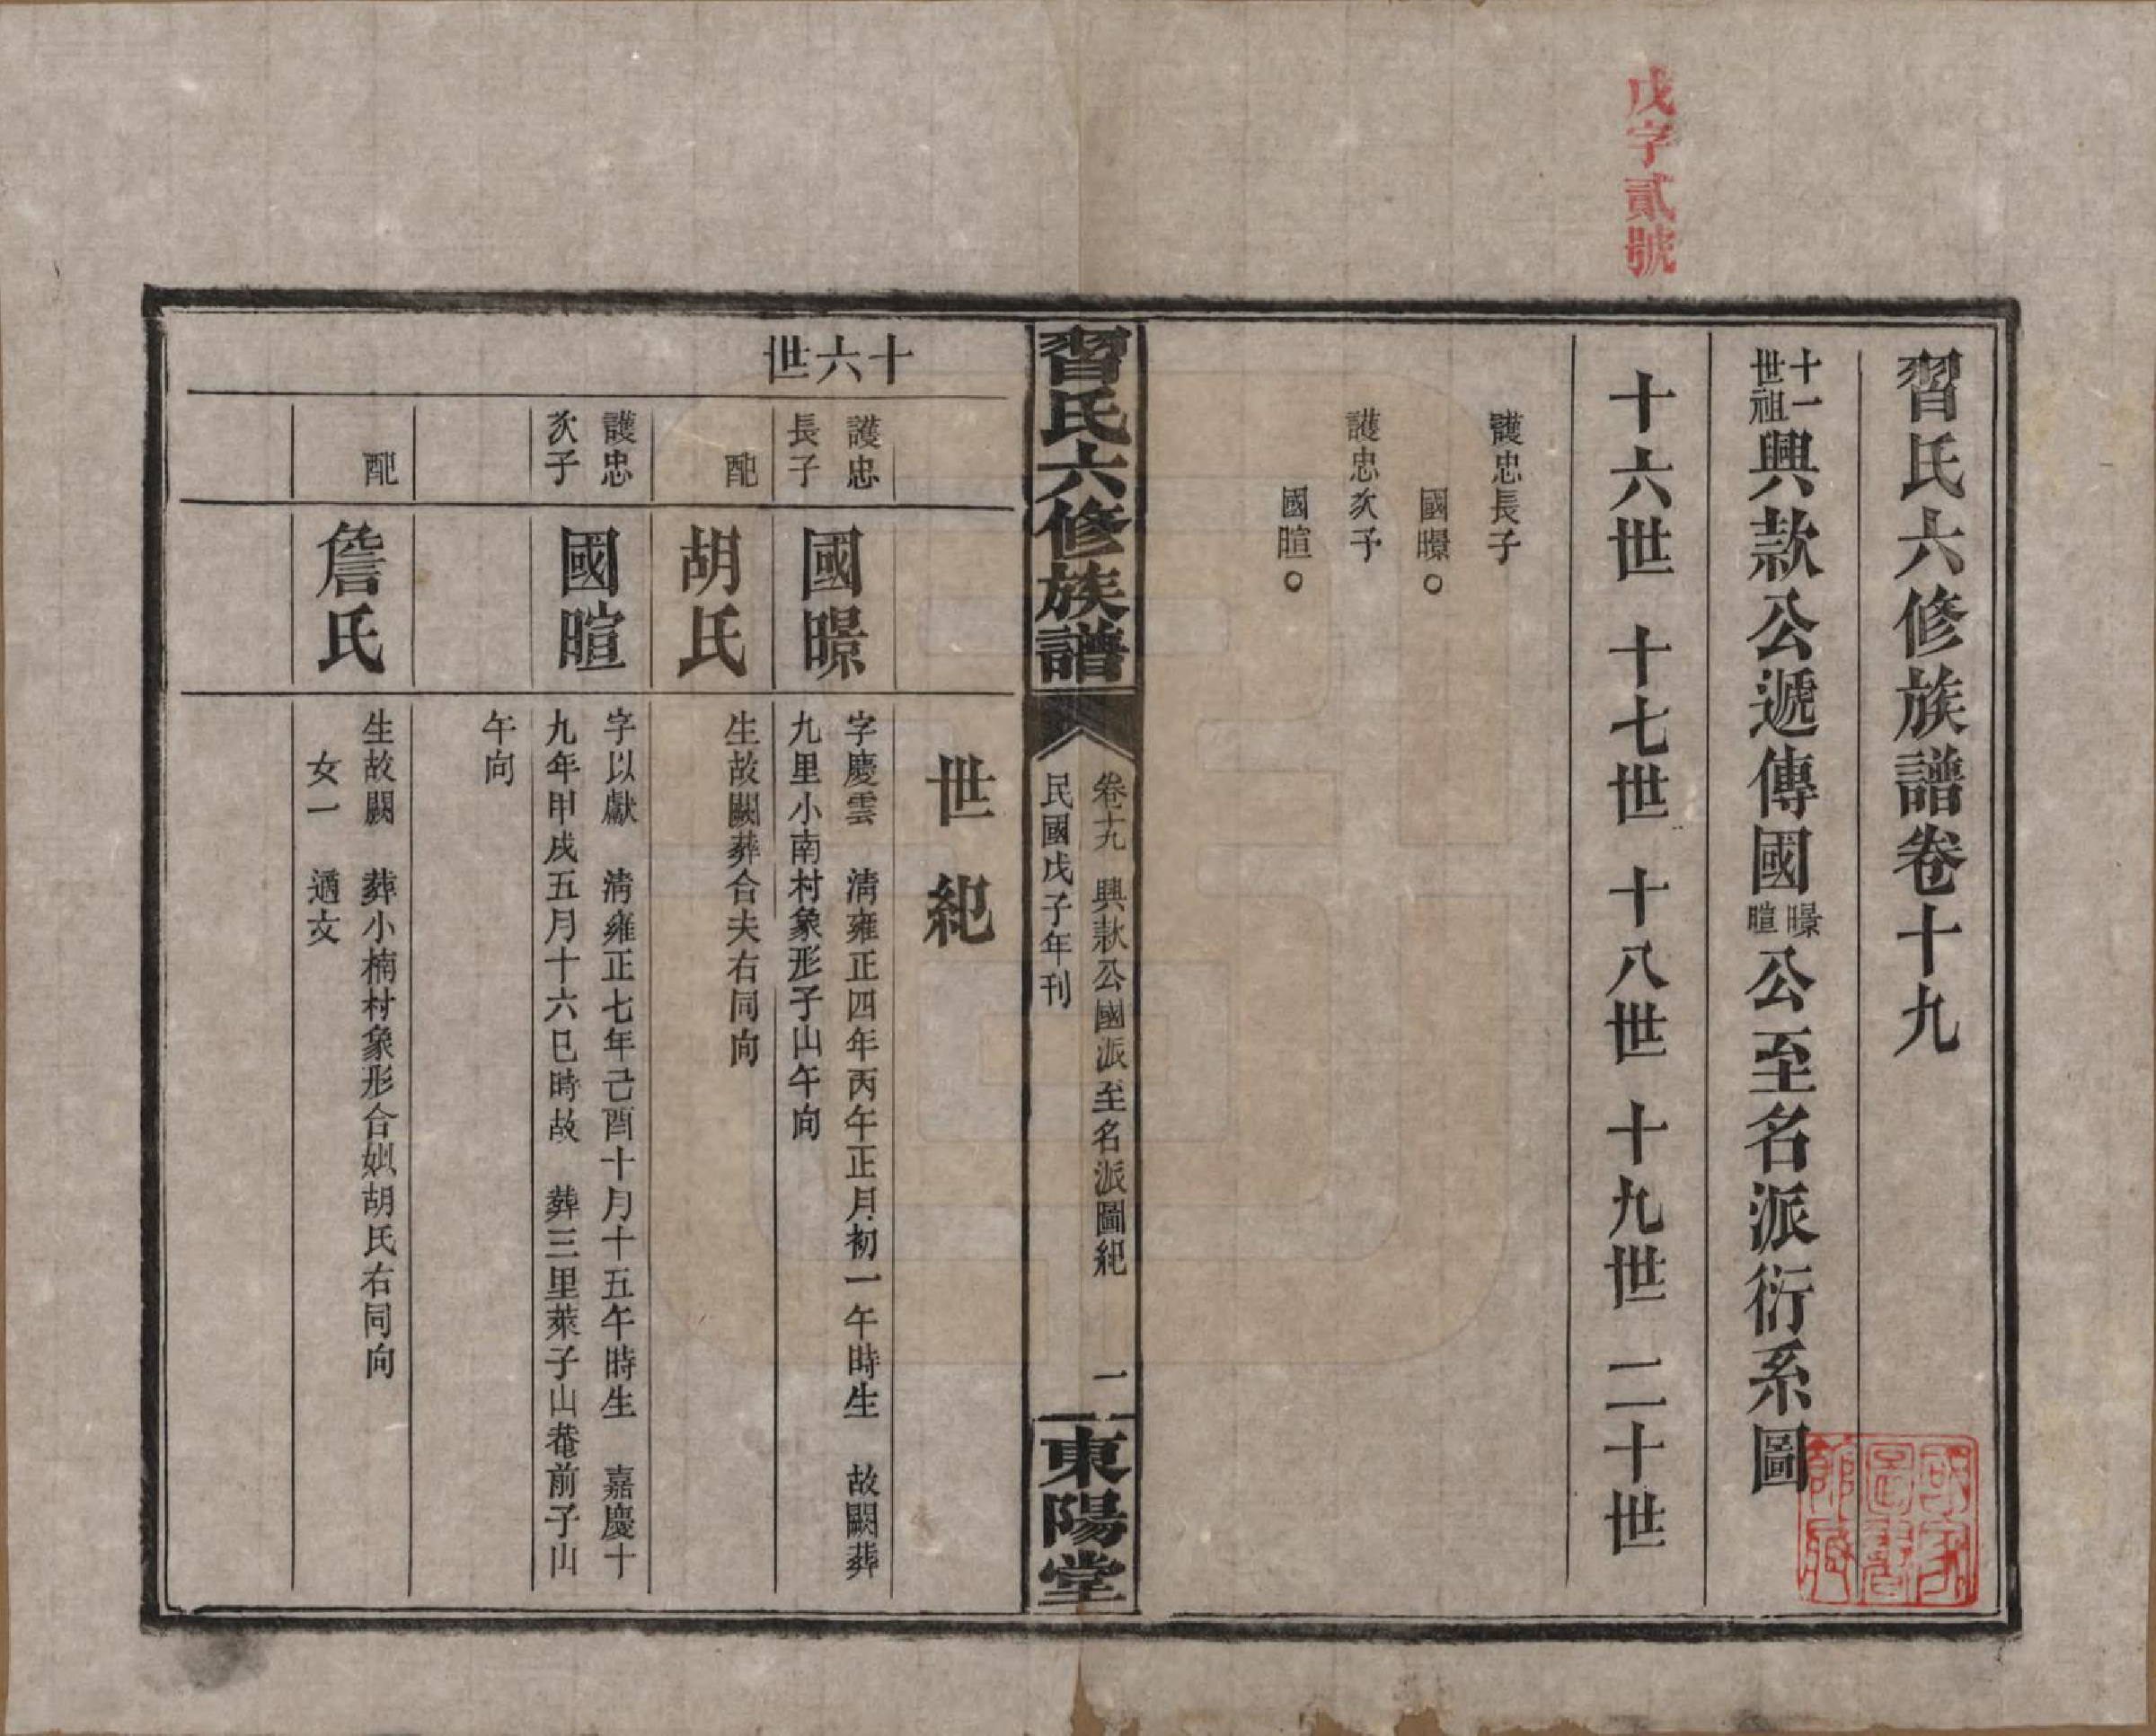 戊字貳號
習氏六修族譜卷十九
十一世祖興款公遞傳國㬌暄公至名派衍系圖
十六世 十七世 十八世 十九世 二十世
護忠長子
國㬌○
護忠次子
國暄○
習氏六修族譜
卷十九 興款公國派至名派圖紀 一
民國戊子年刊
東陽堂
十六世
世紀
護忠長子
國㬌
字慶雲 清雍正四年丙午正月初一午時生 故闕葬
九里小南村象形子山午向
配
胡氏
生故闕葬合夫右同向
護忠次子
國暄
字以獻 清雍正七年己酉十月十五午時生 嘉慶十
九年甲戌五月十六巳時故 葬三里萊子山菴前子山
午向
配
詹氏
生故闕 葬小楠村象形合姒胡氏右同向
女一 適文
國家圖書館藏